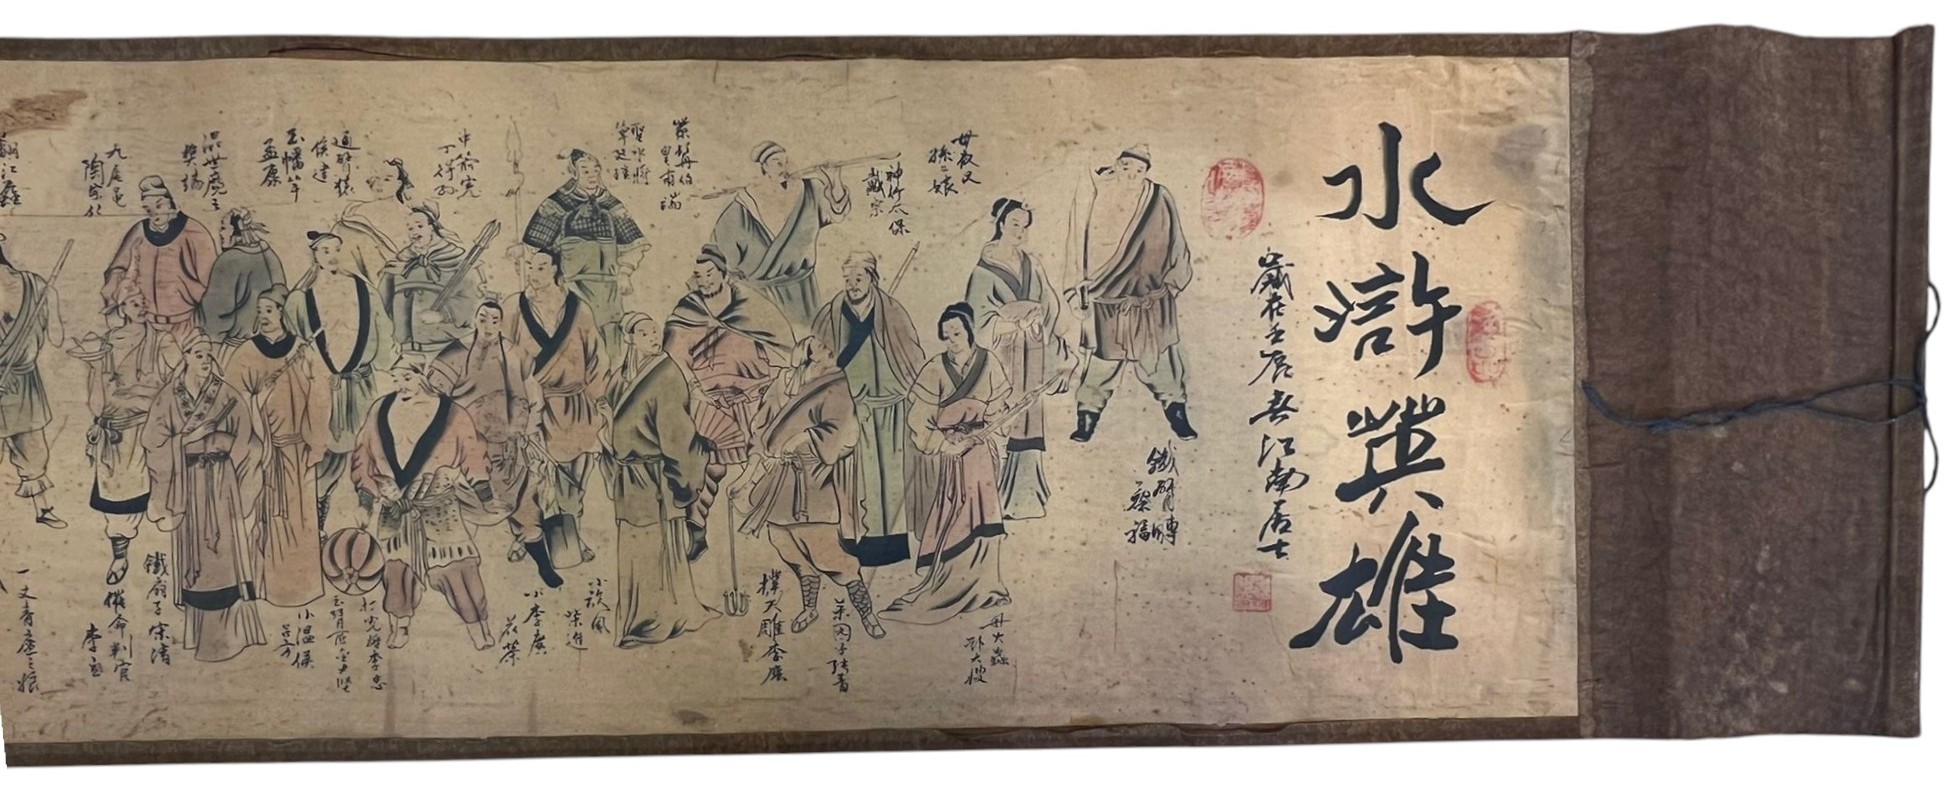 水滸英雄
歲在壬辰春江南居士
鐵臂膊
蔡福
母夜叉
孫二娘
母大蟲
顧大嫂
神行太保
戴宗
菜園子張青
撲天雕李應
紫髯伯
皇甫端
聖水將
單廷珪
小旋風
柴進
小李廣
花榮
中箭虎
丁得孙
通臂猿
侯建
玉幡竿
孟康
小溫侯
呂方
混世魔王
樊瑞
鐵扇子宋清
九尾龜
陶宗旺
催命判官
李立
一丈青扈三娘